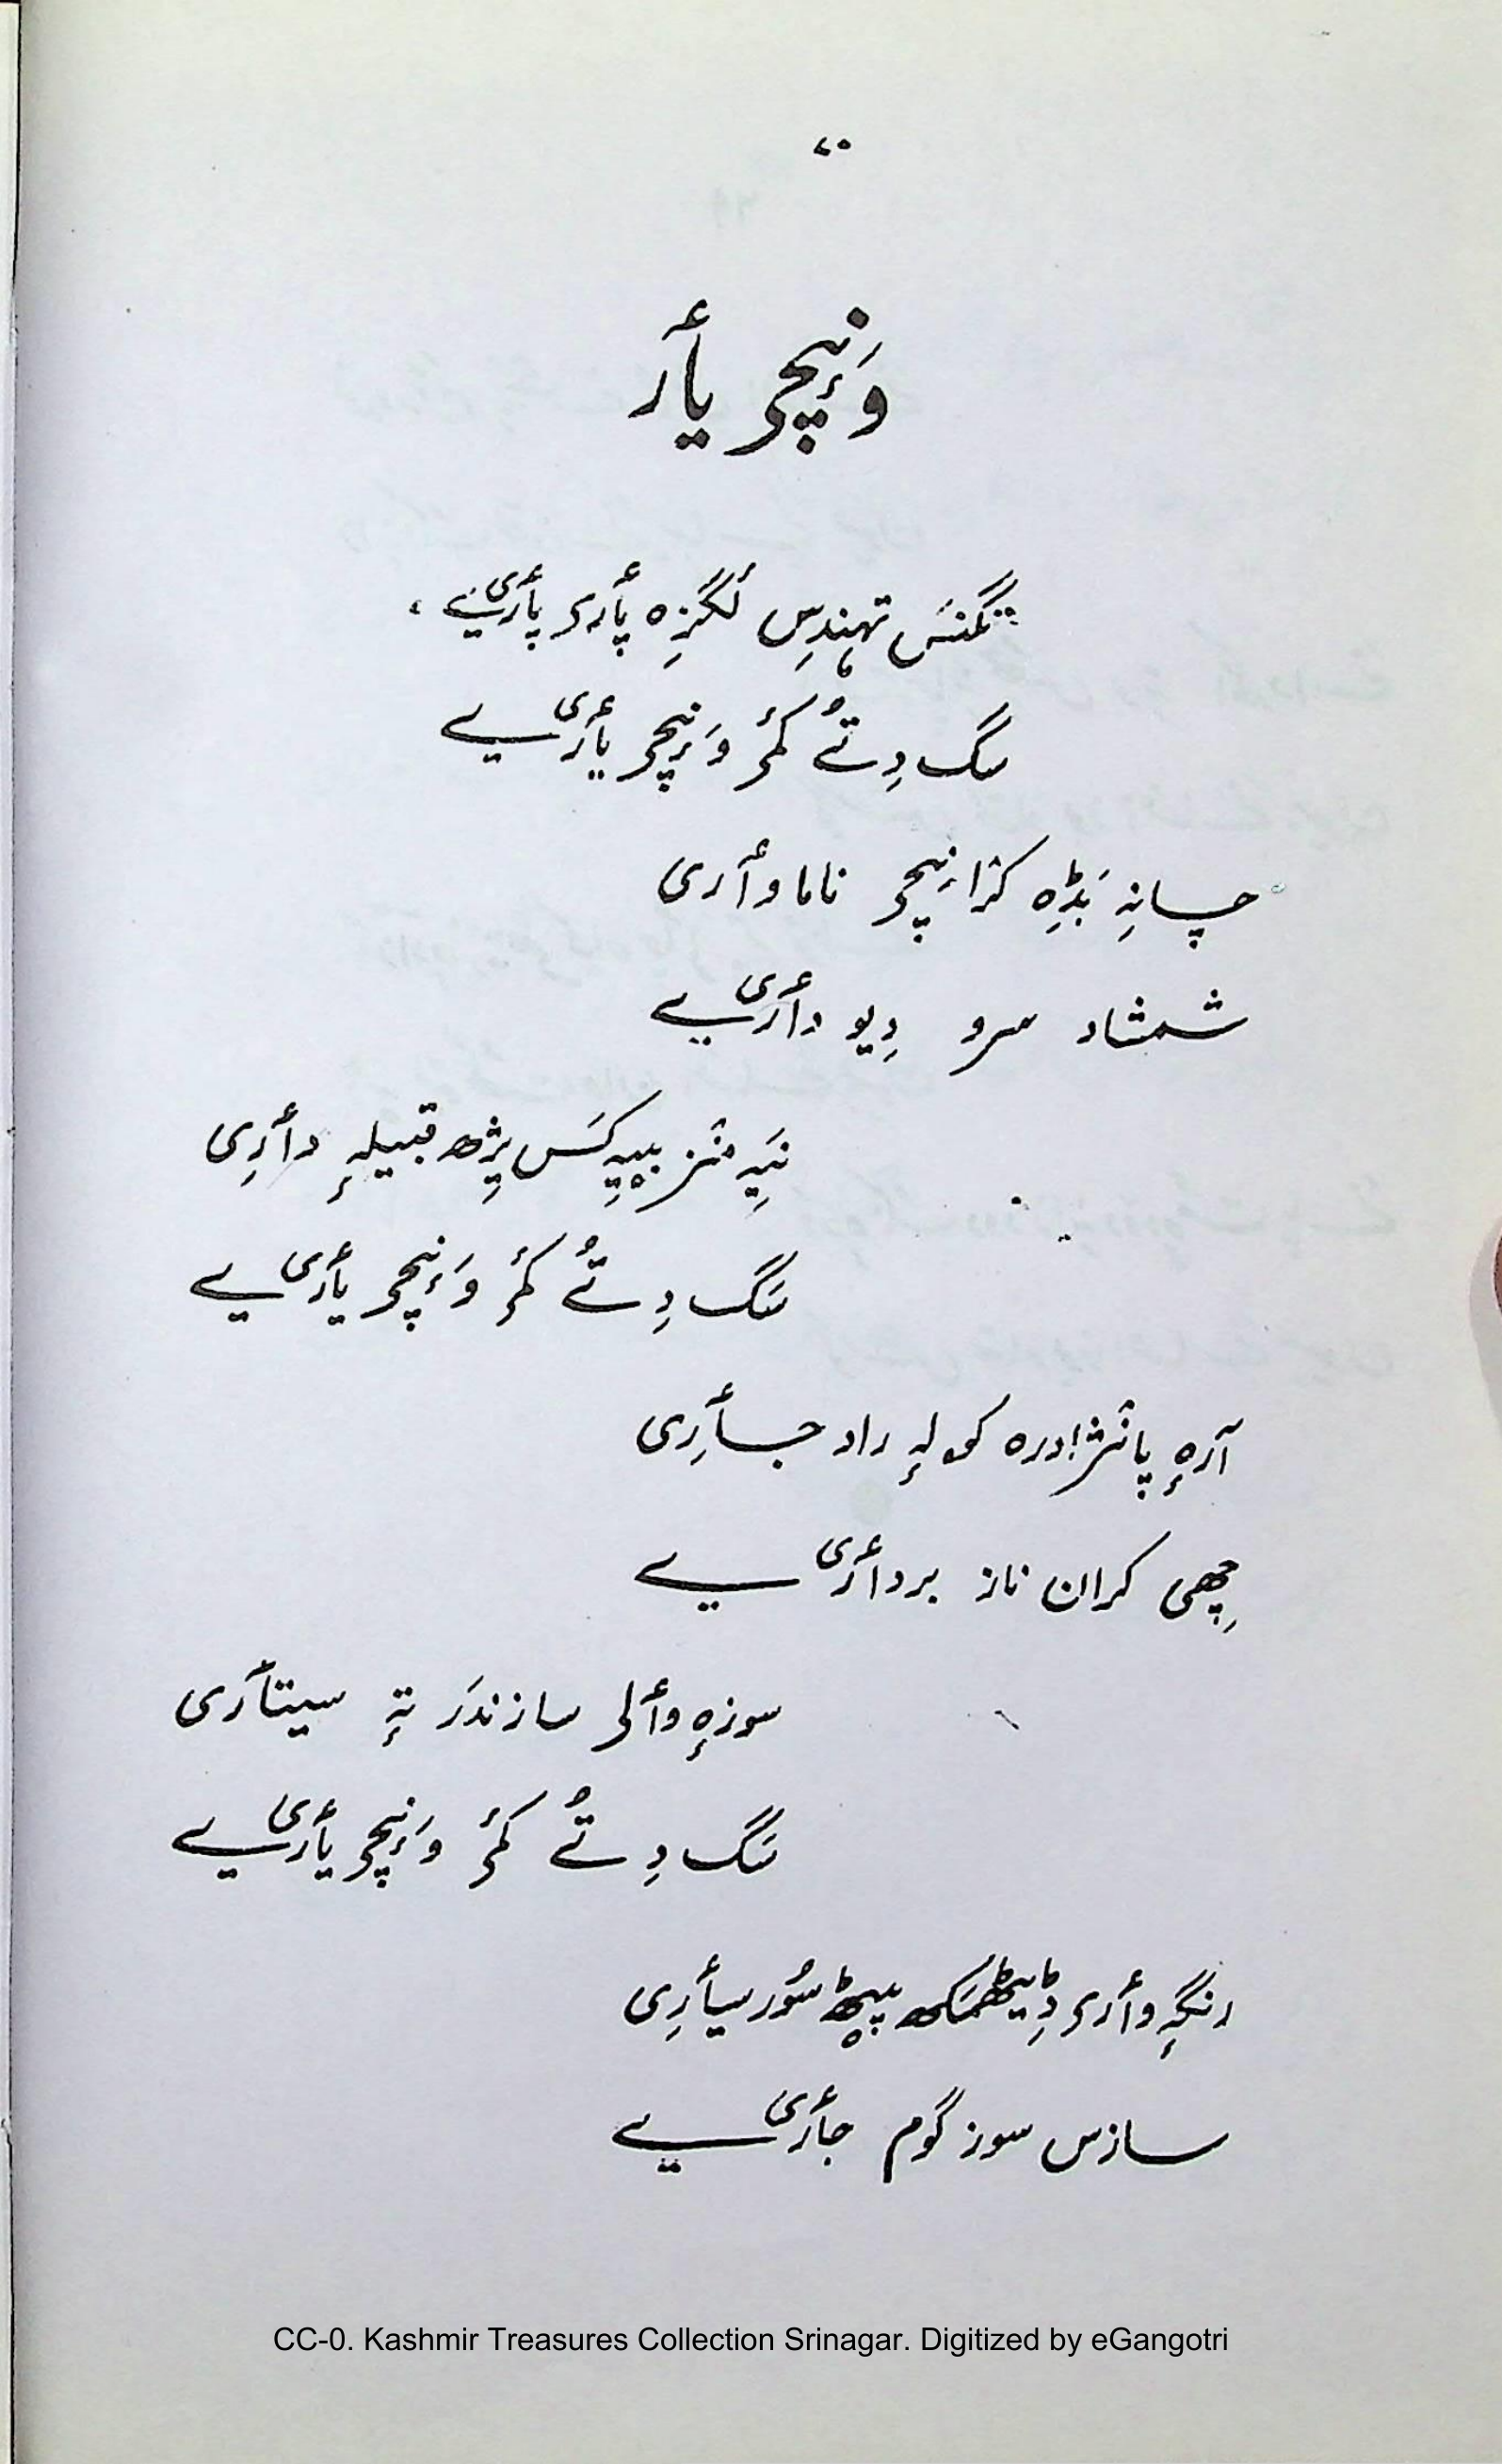 ۷۰
وَنٕچۍ یٲر
تگنَس تہٕندِس لَگزِہ پٲرۍ پٲرۍیے
سگ دِتُے کمۍ وَنٕچۍ یٲرۍیے
چانہِ بَڈِہ کژانٕچۍ ناما وٲری
شمشاد سرو دِیو دٲرۍیے
نَیہِ منٛز بییہِ کَس یِژھ قبیلہٕ دٲرِی
سَگ دِتُے کمۍ وَنٕچۍ یٲرۍیے
آرہٕ پانٛژادرہ کولہٕ راد جٲرِی
چِھی کران ناز بردٲرۍیے
سوزہٕ وٲلۍ سازندَر تہٕ سیتٲری
سَگ دِتُے کمۍ وَنٕچۍ یٲرۍیے
رنگہٕ وٲرۍ ڈِیٹھمَکھ پیٹھ سُور سیٲرِی
سازس سوز گوم جٲرۍیے
CC-0. Kashmir Treasures Collection Srinagar. Digitized by eGangotri